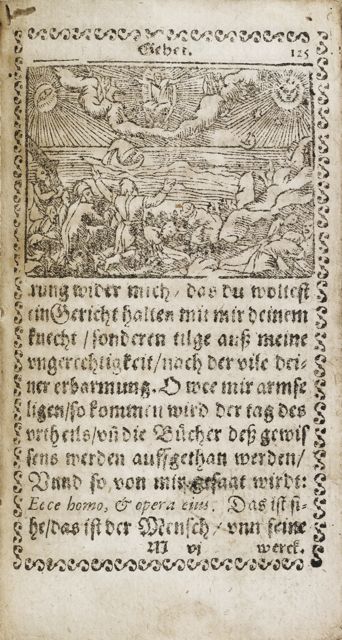 Gebet. 125
rung wider mich / das du wollest
ein Gericht halten mit mir deinem
knecht / sonderen tilge auß meine
vngerechtigkeit / nach der vile dei-
ner erbarmung. O wee mir armse
ligen / so kommen wird der tag des
vrtheils / vñ die Bücher deß gewis
sens werden auffgethan werden /
Vnnd so von mir gesagt wirdt:
Ecce homo, & opera eius. Das ist si-
he / das ist der Mensch / vnn seine
M vj werck.